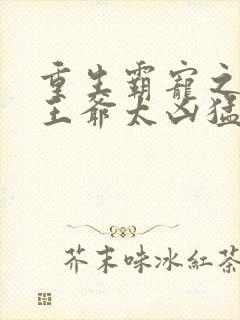 重生霸寵之
王爺太凶猛
芥末味冰紅茶